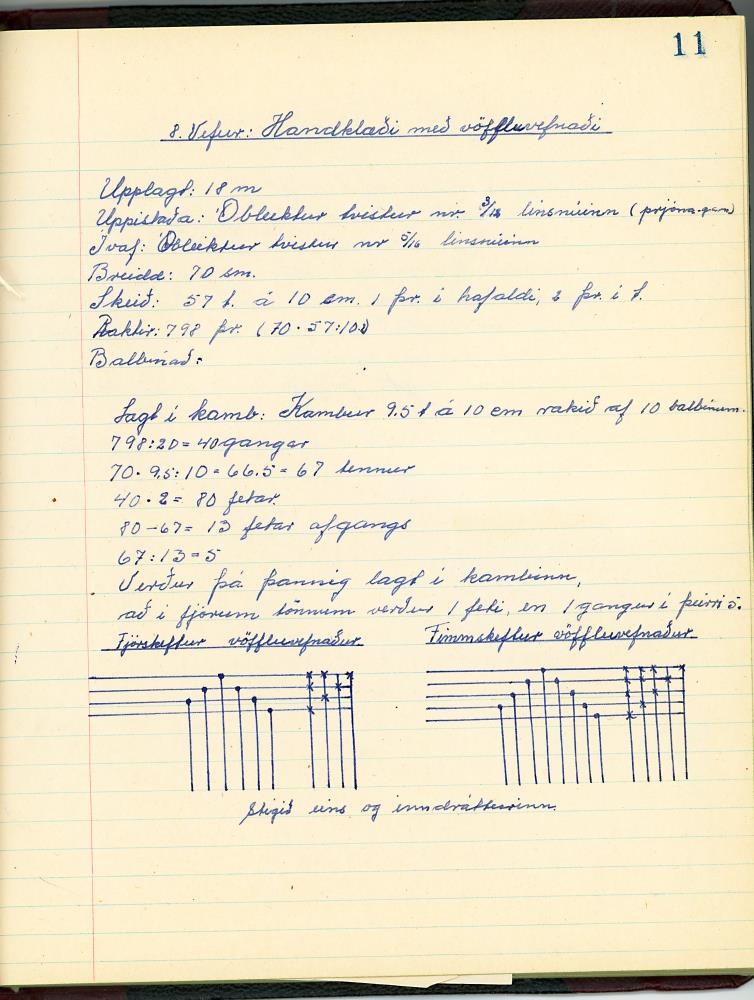 11
8. Vefur: Handklæði með vöffluvefnaði
Upplagt: 18 m
Uppistaða: Óbleiktur tvistur nr línsnúinn (prjóna-garn)
Ívaf: Óbleiktur tvistur nr 5/16 línsnúinn
Breidd: 70 sm.
Skeið: 57 t. á 10 cm. 1 þr. í hafaldi, 2 þr. í t.
Raktir: 798 þr. (70 · 57:10.2)
Balbínað:
Lagt í kamb: Kambur 9.5 t á 10 cm rakið af 10 balbínum.
798:20 = 40 gangar
70 · 9,5:10 = 66.5 = 67 tennur
40 · 2 = 80 fetar.
80 – 67 = 13 fetar afgangs
67:13 = 5
Verður þá þannig lagt í kambinn,
að í fjórum tönnum verður 1 feti, en 1 gangur í þeirri 5.
Fjórskeftur vöffluvefnaður. Fimmskeftur vöffluvefnaður
Stigið eins og inndrátturinn.